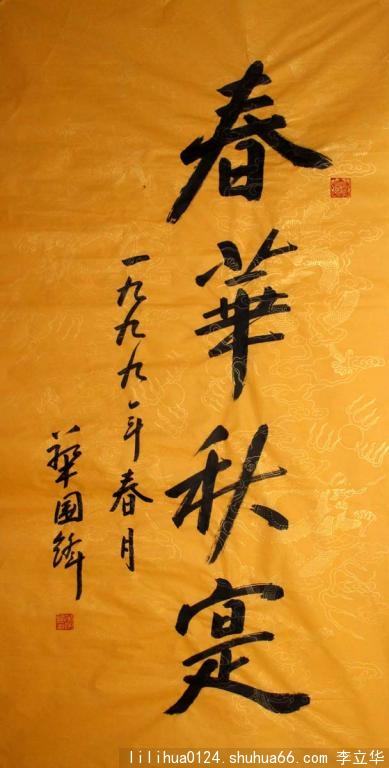 春華秋寔
一九九九年春月
華国鋒
lilihua0124.shuhua66.com 李立华